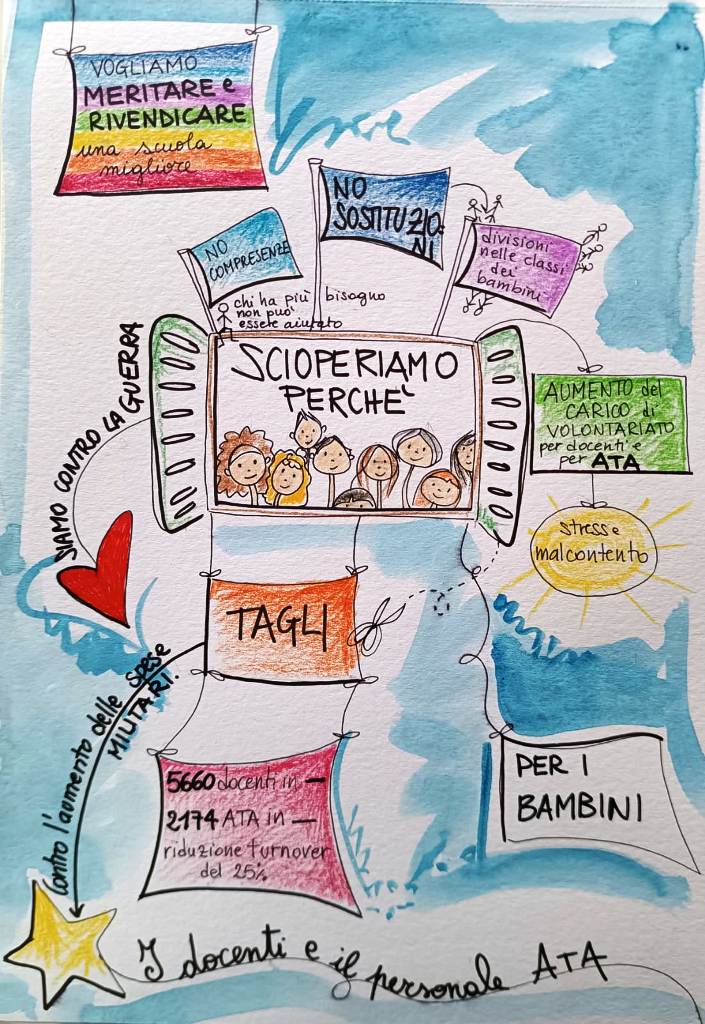 VOGLIAMO
MERITARE e
RIVENDICARE
una scuola
migliore
NO
COMPRESENZE
NO
SOSTITUZIO-
NI
divisioni
nelle classi
dei
bambini
chi ha più bisogno
non può
essere aiutato
SCIOPERIAMO
PERCHÈ
AUMENTO del
CARICO di
VOLONTARIATO
per docenti e
per ATA
stress e
malcontento
SIAMO CONTRO LA GUERRA
TAGLI
Contro l'aumento delle SPESE
MILITARI.
5660 docenti in —
2174 ATA in —
riduzione turnover
del 25%
PER I
BAMBINI
I docenti e il personale ATA